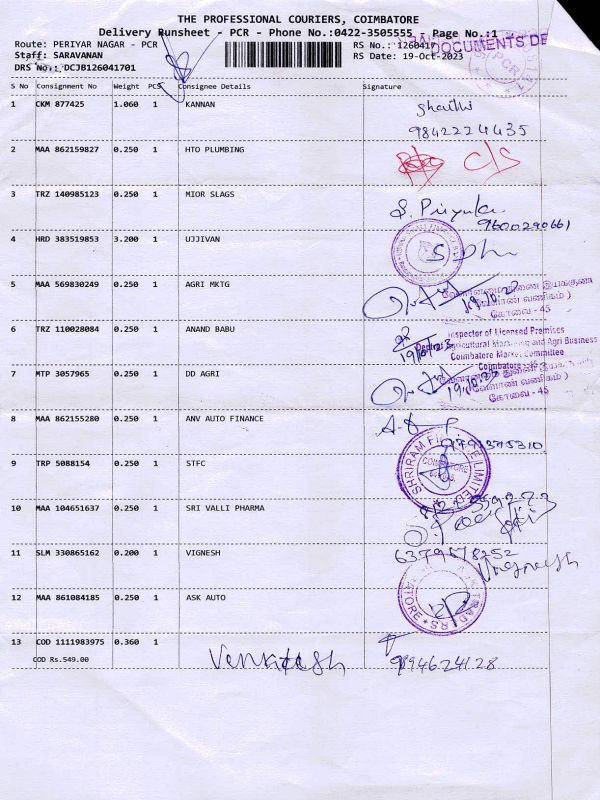 THE PROFESSIONAL COURIERS, COIMBATORE
Delivery Runsheet - PCR - Phone No.:0422-3505555 Page No.:1
Route: PERIYAR NAGAR - PCR
RS No.: 1260417
DOCUMENTS DE
Staff: SARAVANAN
RS Date: 19-Oct-2023
DRS No.: DCJB126041701
S No Consignment No Weight PCS Consignee Details Signature
1 CKM 877425 1.060 1 KANNAN
9842224435
2 MAA 862159827 0.250 1 HTO PLUMBING
C/S
3 TRZ 140985123 0.250 1 MIOR SLAGS
S. Priyanka
9600290661
4 HRD 383519853 3.200 1 UJJIVAN
5 MAA 569830249 0.250 1 AGRI MKTG
19.10.23
கோவை - 45
6 TRZ 110028084 0.250 1 ANAND BABU
Inspector of Licensed Premises
Agricultural Marketing and Agri Business
Coimbatore Market Committee
Coimbatore
7 MTP 3057965 0.250 1 DD AGRI
19.10.23
கோவை - 45
8 MAA 862155280 0.250 1 ANV AUTO FINANCE
9 TRP 5088154 0.250 1 STFC
SHRIRAM FINANCE LIMITED
COIMBATORE
10 MAA 104651637 0.250 1 SRI VALLI PHARMA
11 SLM 330865162 0.200 1 VIGNESH
6379578252
Vignesh
12 MAA 861084185 0.250 1 ASK AUTO
TRADERS
13 COD 1111983975 0.360 1
COD Rs.549.00
Venkitesh
9894624128